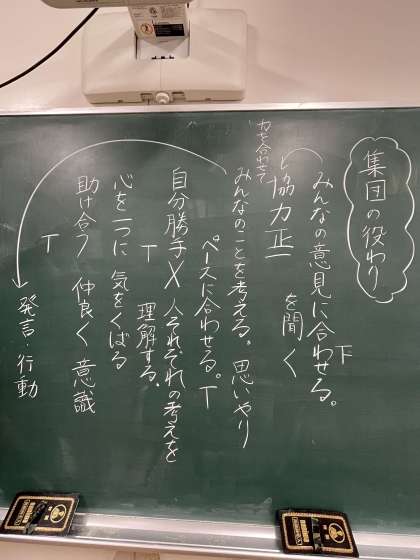 集団の役わり
みんなの意見に合わせる。
下
を聞く
協力正一
力を合わせて
みんなのことを考える。思いやり
ペースに合わせる。T
自分勝手× 人それぞれの考えを
T 理解する。
心を一つに 気をくばる
助け合う 仲良く 意識
T
発言・行動